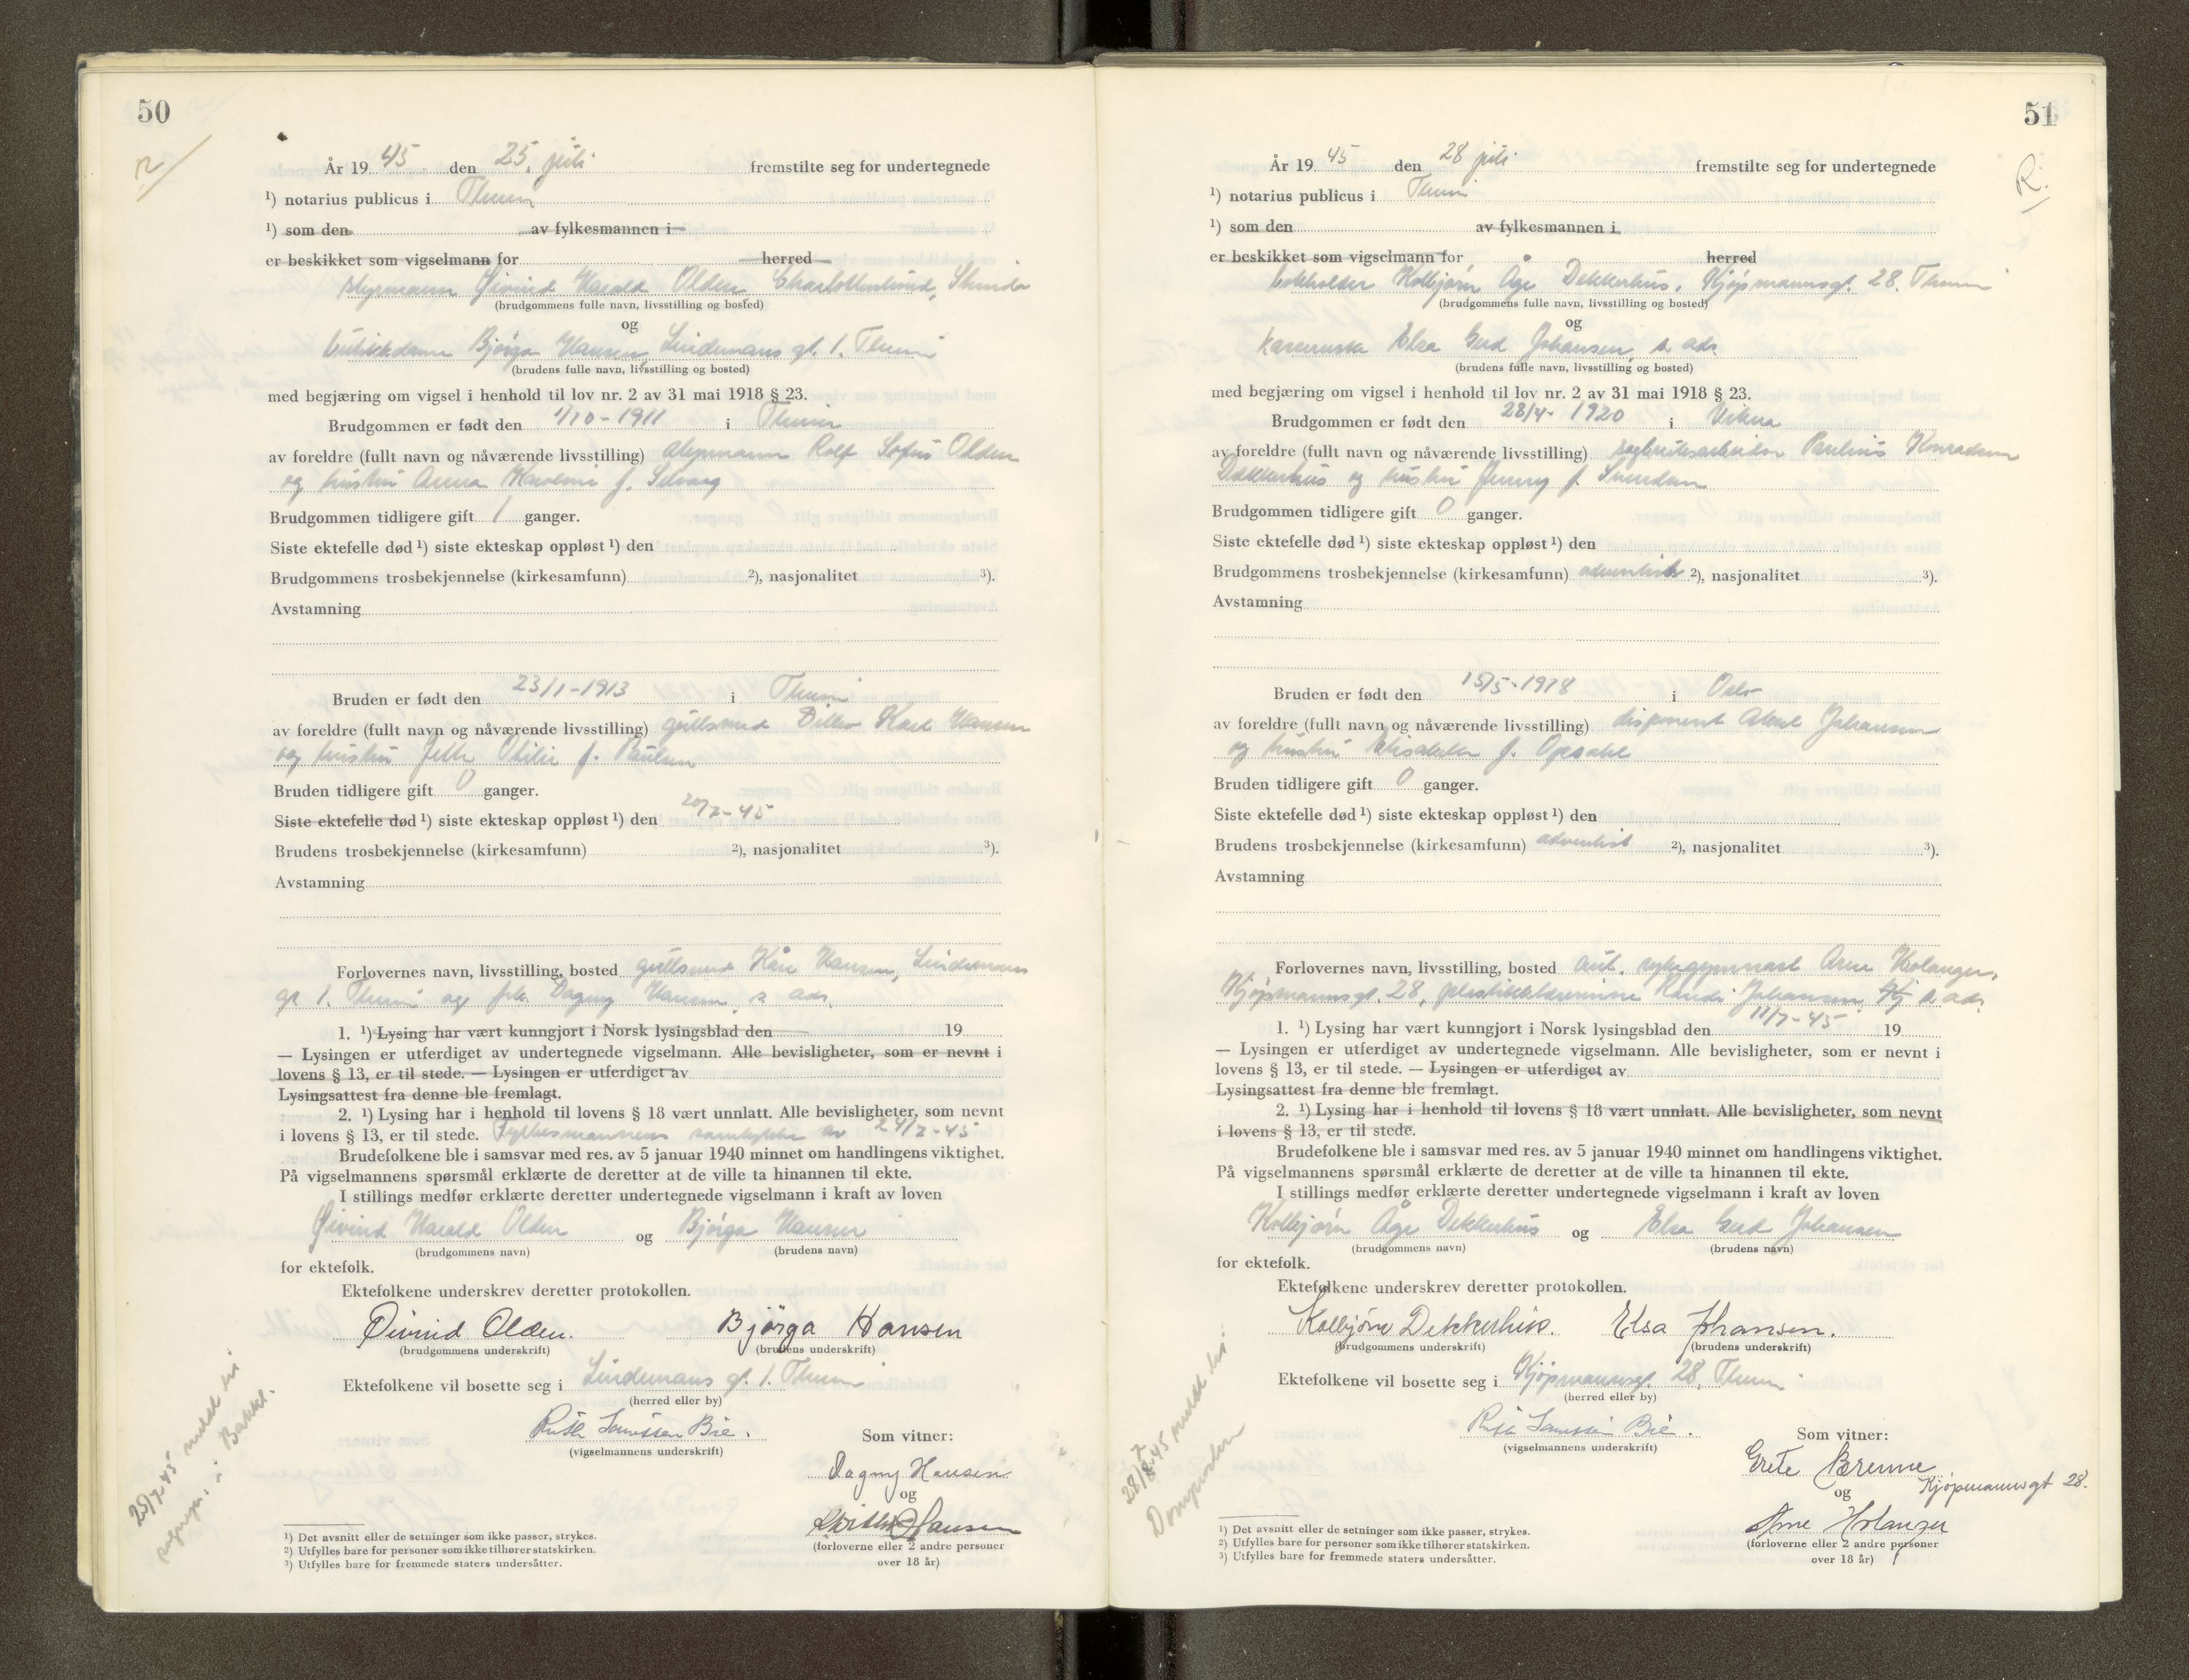 50
År 1945 den 25. juli fremstilte seg for undertegnede
¹) notarius publicus i
¹) som den av fylkesmannen i
er beskikket som vigselmann for herred
styrmann Øivind Harald Olden, Charlottenlund, Strinda
(brudgommens fulle navn, livsstilling og bosted)
og
Bjørga Hansen, Lindemans gt. 1.
(brudens fulle navn, livsstilling og bosted)
med begjæring om vigsel i henhold til lov nr. 2 av 31 mai 1918 § 23.
Brudgommen er født den 1/10-1911 i
av foreldre (fullt navn og nåværende livsstilling) Rolf Sofus Olden
og hustru Anna f.
Brudgommen tidligere gift 1 ganger.
Siste ektefelle død ¹) siste ekteskap oppløst ¹) den
Brudgommens trosbekjennelse (kirkesamfunn) ²), nasjonalitet ³).
Avstamning
Bruden er født den 23/1-1913 i
av foreldre (fullt navn og nåværende livsstilling) gullsmed Karl Hansen
og hustru f. Paulsen
Bruden tidligere gift 0 ganger.
Siste ektefelle død ¹) siste ekteskap oppløst ¹) den 20/7-45
Brudens trosbekjennelse (kirkesamfunn) ²), nasjonalitet ³).
Avstamning
Forlovernes navn, livsstilling, bosted gullsmed Hansen, Lindemans
gt 1. og frk. Dagny Hansen, s. adr.
1. ¹) Lysing har vært kunngjort i Norsk lysingsblad den 19
— Lysingen er utferdiget av undertegnede vigselmann. Alle bevisligheter, som er nevnt i
lovens § 13, er til stede. — Lysingen er utferdiget av
Lysingsattest fra denne ble fremlagt.
2. ¹) Lysing har i henhold til lovens § 18 vært unnlatt. Alle bevisligheter, som nevnt
i lovens § 13, er til stede. Fylkesmannens samtykke av 24/7-45
Brudefolkene ble i samsvar med res. av 5 januar 1940 minnet om handlingens viktighet.
På vigselmannens spørsmål erklærte de deretter at de ville ta hinannen til ekte.
I stillings medfør erklærte deretter undertegnede vigselmann i kraft av loven
Øivind Harald Olden og Bjørga Hansen
(brudgommens navn) (brudens navn)
for ektefolk.
Ektefolkene underskrev deretter protokollen.
Øivind Olden. Bjørga Hansen
(brudgommens underskrift) (brudens underskrift)
Ektefolkene vil bosette seg i Lindemans gt. 1.
(herred eller by)
Bie.
(vigselmannens underskrift) Som vitner:
Dagny Hansen
og
Hansen
(forloverne eller 2 andre personer
over 18 år)
25/7-45 meldt til
i Bakkl.
¹) Det avsnitt eller de setninger som ikke passer, strykes.
²) Utfylles bare for personer som ikke tilhører statskirken.
³) Utfylles bare for fremmede staters undersåtter.
51
R.
År 1945 den 28 juli fremstilte seg for undertegnede
¹) notarius publicus i
¹) som den av fylkesmannen i
er beskikket som vigselmann for herred
Kolbjørn Åge Dekkerhus, Kjøpmannsgt. 28.
(brudgommens fulle navn, livsstilling og bosted)
og
Elsa Gerd Johansen, s. adr.
(brudens fulle navn, livsstilling og bosted)
med begjæring om vigsel i henhold til lov nr. 2 av 31 mai 1918 § 23.
Brudgommen er født den 28/4-1920 i Vikna
av foreldre (fullt navn og nåværende livsstilling) Paulius Konradsen
Dekkerhus og hustru Jenny f.
Brudgommen tidligere gift 0 ganger.
Siste ektefelle død ¹) siste ekteskap oppløst ¹) den
Brudgommens trosbekjennelse (kirkesamfunn) adventist ²), nasjonalitet ³).
Avstamning
Bruden er født den 15/5-1918 i Oslo
av foreldre (fullt navn og nåværende livsstilling) disponent Johansen
og hustru f. Opsahl
Bruden tidligere gift 0 ganger.
Siste ektefelle død ¹) siste ekteskap oppløst ¹) den
Brudens trosbekjennelse (kirkesamfunn) adventist ²), nasjonalitet ³).
Avstamning
Forlovernes navn, livsstilling, bosted aut. sykegymnast Arne Holanger,
Kjøpmannsgt. 28, Randi Johansen, s. adr.
1. ¹) Lysing har vært kunngjort i Norsk lysingsblad den 11/7-45 19
— Lysingen er utferdiget av undertegnede vigselmann. Alle bevisligheter, som er nevnt i
lovens § 13, er til stede. — Lysingen er utferdiget av
Lysingsattest fra denne ble fremlagt.
2. ¹) Lysing har i henhold til lovens § 18 vært unnlatt. Alle bevisligheter, som nevnt
i lovens § 13, er til stede.
Brudefolkene ble i samsvar med res. av 5 januar 1940 minnet om handlingens viktighet.
På vigselmannens spørsmål erklærte de deretter at de ville ta hinannen til ekte.
I stillings medfør erklærte deretter undertegnede vigselmann i kraft av loven
Kolbjørn Åge Dekkerhus og Elsa Gerd Johansen
(brudgommens navn) (brudens navn)
for ektefolk.
Ektefolkene underskrev deretter protokollen.
Kolbjørn Dekkerhus. Elsa Johansen.
(brudgommens underskrift) (brudens underskrift)
Ektefolkene vil bosette seg i Kjøpmannsgt. 28,
(herred eller by)
Bie.
(vigselmannens underskrift) Som vitner:
Grete Brenne
Kjøpmannsgt 28.
og
Arne Holanger
(forloverne eller 2 andre personer
over 18 år)
meldt til
Domprosten
¹) Det avsnitt eller de setninger som ikke passer, strykes.
²) Utfylles bare for personer som ikke tilhører statskirken.
³) Utfylles bare for fremmede staters undersåtter.